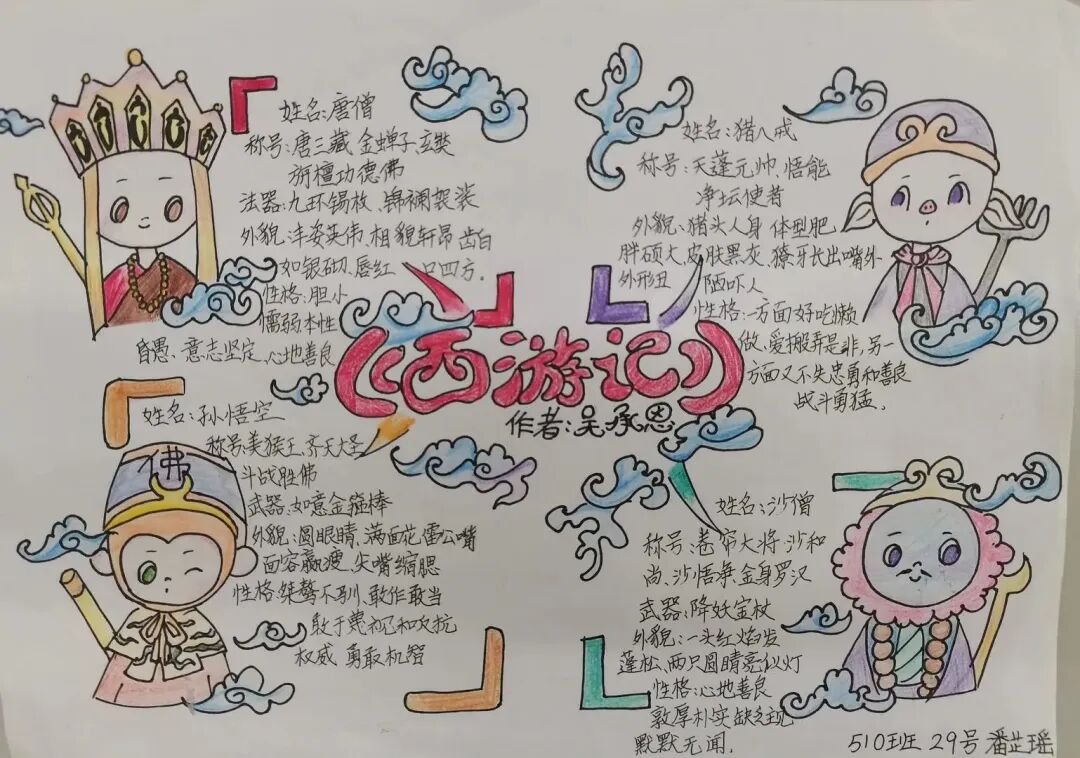 姓名:唐僧
称号:唐三藏、金蝉子、玄奘
旃檀功德佛
法器:九环锡杖、锦襕袈裟
外貌:丰姿英伟,相貌轩昂 齿白
如银砌、唇红 口四方.
性格:胆小
懦弱本性
昏愚、意志坚定、心地善良
姓名:猪八戒
称号:天蓬元帅、悟能
净坛使者
外貌:猪头人身 体型肥
胖硕大 皮肤黑灰、獠牙长出嘴外
外形丑 陋吓人
性格:一方面好吃懒
做、爱搬弄是非,另一
方面又不失忠勇和善良
战斗勇猛.
《西游记》
作者:吴承恩
姓名:孙悟空
称号:美猴王、齐天大圣
斗战胜佛
武器:如意金箍棒
外貌:圆眼睛、满面花 雷公嘴
面容羸瘦、尖嘴缩腮
性格:桀骜不驯、敢作敢当
敢于蔑视和反抗
权威 勇敢机智
佛
姓名:沙僧
称号:卷帘大将 沙和
尚、沙悟净、金身罗汉
武器:降妖宝杖
外貌:一头红焰发
蓬松、两只圆睛亮似灯
性格:心地善良
敦厚朴实 缺乏主现
默默无闻.
510班 29号 潘芷瑶